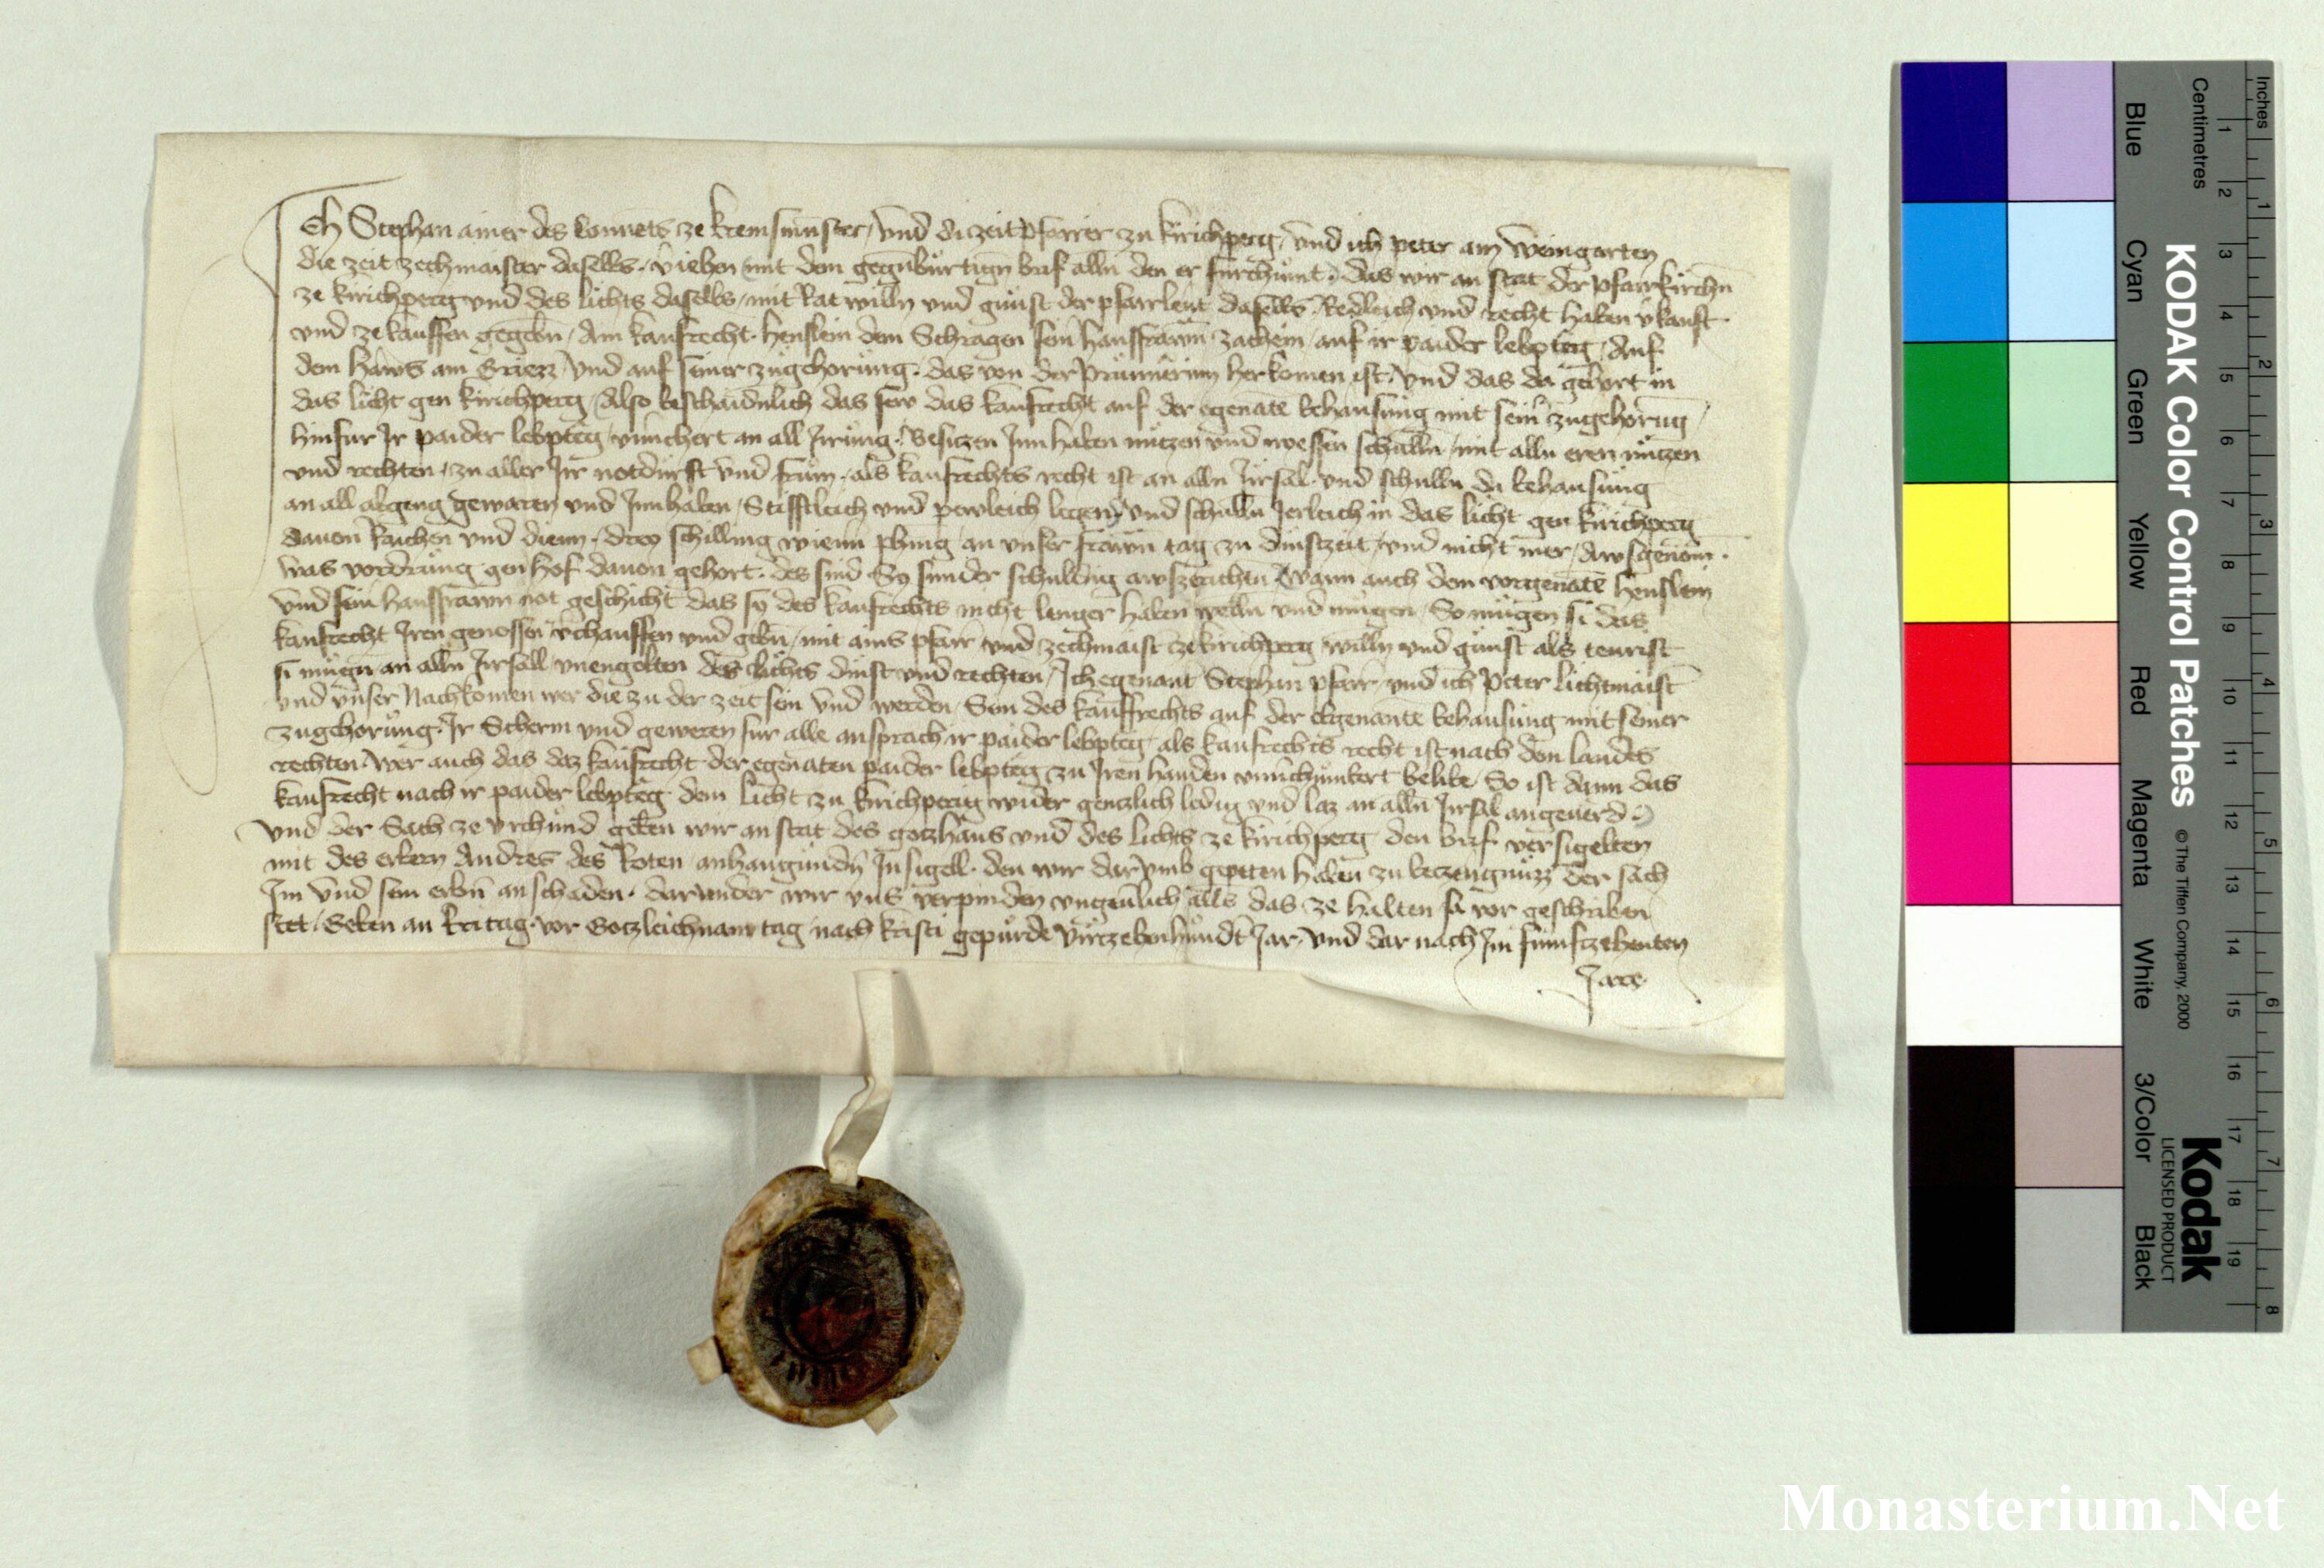 Ich Stephan ainer des Conuets ze Kremsmunster, vnd di zeit Pfarrer zu Kirichperg, vnd ich peter am Weingarten
die zeit zechmaister daselbs, v̄iehen mit dem gegnbürtign brif alln den er fürchumt, das wir an stat der Pfarrkirchn
ze kirichperg vnd des lichts daselbs, mit Rat willn vnd gunst der pfarrlent daselbs, Redleich vnd recht haben v̄kauft
vnd ze kauffen gegebn, Am kaufrecht, Henslein dem Schragen sein hausfrawn, auf ir paider lebpteg, Auf
dem haws am vnd auf seiner zugehorung, das von der herkomen ist, vnd das da gehort in
das licht gen kirichperg, Also beschaidnlich das sew das kaufrecht auf der egenate behausung mit sein zugehorug
hinfur Jr paider lebpteg, an all Jrrung, Besitzen Jnnhaben nutzen vnd niessen schulln, mit alln eren nützen
vnd rechten, zu aller Jr notdurft vnd frum, als kaufrechts recht ist an alln Jrsal, vnd schulln di behausung
an all abgeng vnd Jnnhaben, Stifftleich vnd pewleich legen, vnd schulln Jerleich in das licht gen kirichperg
dauon Raichen vnd dienn, drey schilling wienn phenig, an vnser frawn tag zu dinstzeit, vnd nicht mer, Awsgenom
was vordrung gen hof dauon gehort, des sind Sy sunder schuldig awszerichtn, Wann auch dem vorgenate henslein
vnd sein hausfrawn not geschicht das sy des kaufrechts nicht lenger haben welln vnd mugen, So mugen si das
kaufrecht Jren genossen v̄chauffen vnd gebn, mit ains pfarr vnd zechmaist ze kirichperg willn vnd gunst als teurist
si mugn an alln Jrsall vnengolten des lichts dinst vnd rechten, Ich egenant Stephan pfarr, vnd ich Peter lichtmaist
vnd vnser Nachkomen wer die zu der zeit sein vnd werden, Sein des kauffrechts auf der obgenante behausung mit seiner
zugehorung, Jr Scherm vnd geweren fur alle ansprach ir paider lebpteg, als kaufrechts recht ist nach dem landes
rechten, wer auch das daz kaufrecht der egenaten paider lebpteg zu Jren handen belibe, So ist dann das
kaufrecht nach ir paider lebpteg dem licht zu kirichperg wider genczlich ledig vnd laz an alln Jrsal angeuerd
vnd der Sach ze vrchund geben wir an stat des gotzhaus vnd des lichts ze kirichperg den brif versigelten
mit des erbern Andres des Roten anhangunden Jnsigell, den wir darvmb gepeten haben zu beczeugnuzz der sach
Jm vnd sein erbn an schaden, darunder wir vns verpinden vngeulich alls das ze halten, so vor geschriben
stet, Geben an Freitag, vor Gotzleichnam tag, nach kristi gepurde virtzehenhundt Jar, vnd dar nach Jm funftzehenten
Jare
Inches
Centimetres
1
2
3
4
5
6
7
8
9
10
11
12
13
14
15
16
17
18
19
1
2
3
4
5
6
7
8
KODAK Color Control Patches
© The Tiffen Company, 2000
Kodak
LICENSED PRODUCT
Blue
Cyan
Green
Yellow
Red
Magenta
White
3/Color
Black
Monasterium.Net